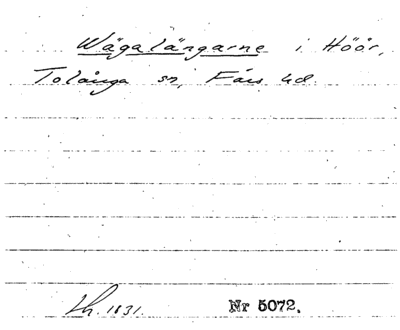 Wägalängarne i Höör,
Tolånga sn, Färs hd.
Lh. 1831. Nr 5072.